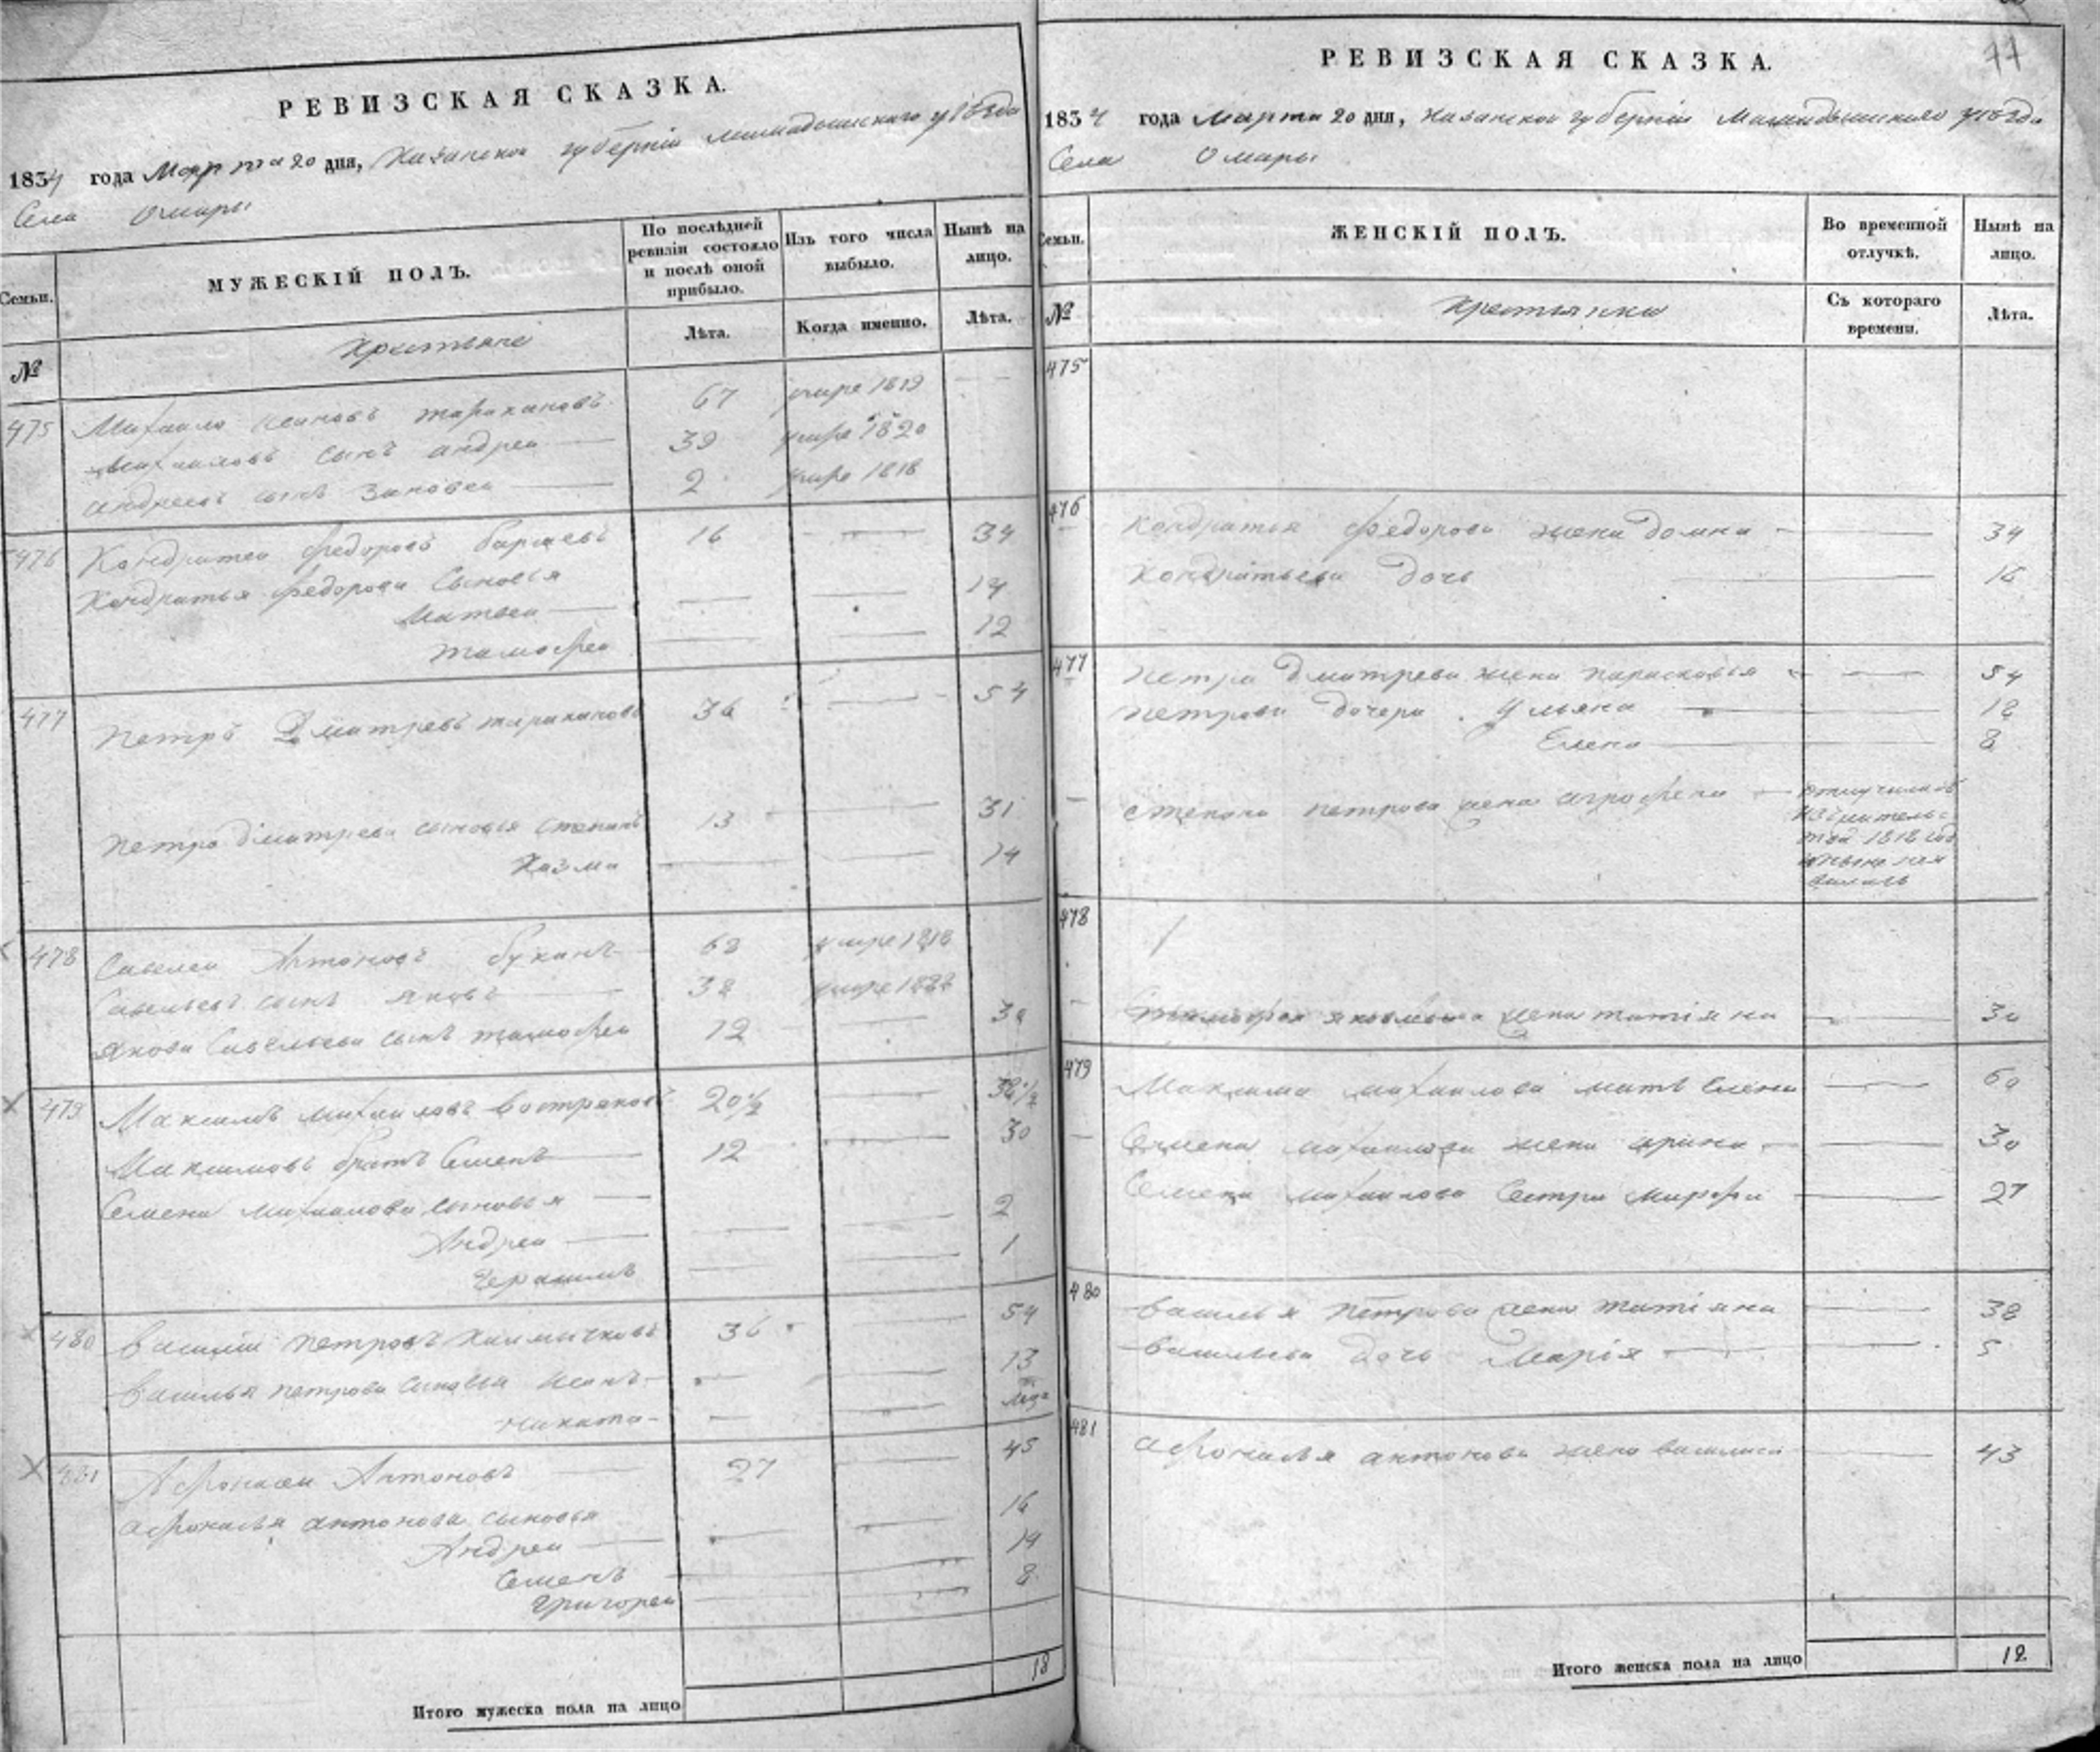 РЕВИЗСКАЯ СКАЗКА.
1834 года Марта 20 дня, Казанской губернiи Мамадышскаго уѣзда
Села Омары
Семьи.
МУЖЕСКІЙ ПОЛЪ.
По послѣдней ревизіи состояло и послѣ оной прибыло.
Изъ того числа выбыло.
Нынѣ на лицо.
№
Крестьяне
Лѣта.
Когда именно.
Лѣта.
475 Михаило Ивановъ Таракановъ 67 умре 1819
Михаиловъ сынъ Андреи 39 умре 1820
Андреевъ сынъ Зиновеи 2 умре 1818
476 Кондратеи Федоровъ 16 34
Кондратья Федорова сыновья
Матвеи 14
Тимофеи 12
477 Петръ Дмитревъ Таракановъ 36 54
Петра Дмитрева сыновья Степанъ 13 31
Козма 14
478 Савелеи Антоновъ 68 умре 1818
Савельевъ сынъ Яковъ 38
Якова Савельева сынъ Тимофеи 12 30
479 Максимъ Михаиловъ Востряковъ 20½ 38½
Максимовъ братъ Семенъ 12 30
Семена Михаилова сыновья
Андреи 2
Герасимъ 1
480 Василiи Петровъ 36 54
Василья Петрова сыновья Иванъ 13
Никита
481 Афонасеи Антоновъ 27 45
Афонасья Антонова сыновья
Андреи 16
Семенъ 14
Григореи 8
Итого мужеска пола на лицо 18
77
РЕВИЗСКАЯ СКАЗКА.
1834 года Марта 20 дня, Казанской губернiи Мамадышскаго уѣзда
Села Омары
Семьи.
ЖЕНСКІЙ ПОЛЪ.
Во временной отлучкѣ.
Нынѣ на лицо.
№
Крестьянки
Съ котораго времени.
Лѣта.
475
476 Кондратья Федорова жена Домна 34
Кондратьева дочь 16
477 Петра Дмитрева жена Парасковья 54
Петровы дочери Ульяна 12
Елена 8
Степана Петрова жена Агрофена
1818
478
Тимофея Яковлева жена Татiяна 30
479 Максима Михаилова мать Елена 60
Семена Михаилова жена Ирина 30
Семена Михаилова сестра Марфа 27
480 Василья Петрова жена Татiяна 38
Васильева дочь Марiя 5
481 Афонасья Антонова жена Василиса 43
Итого женска пола на лицо 12